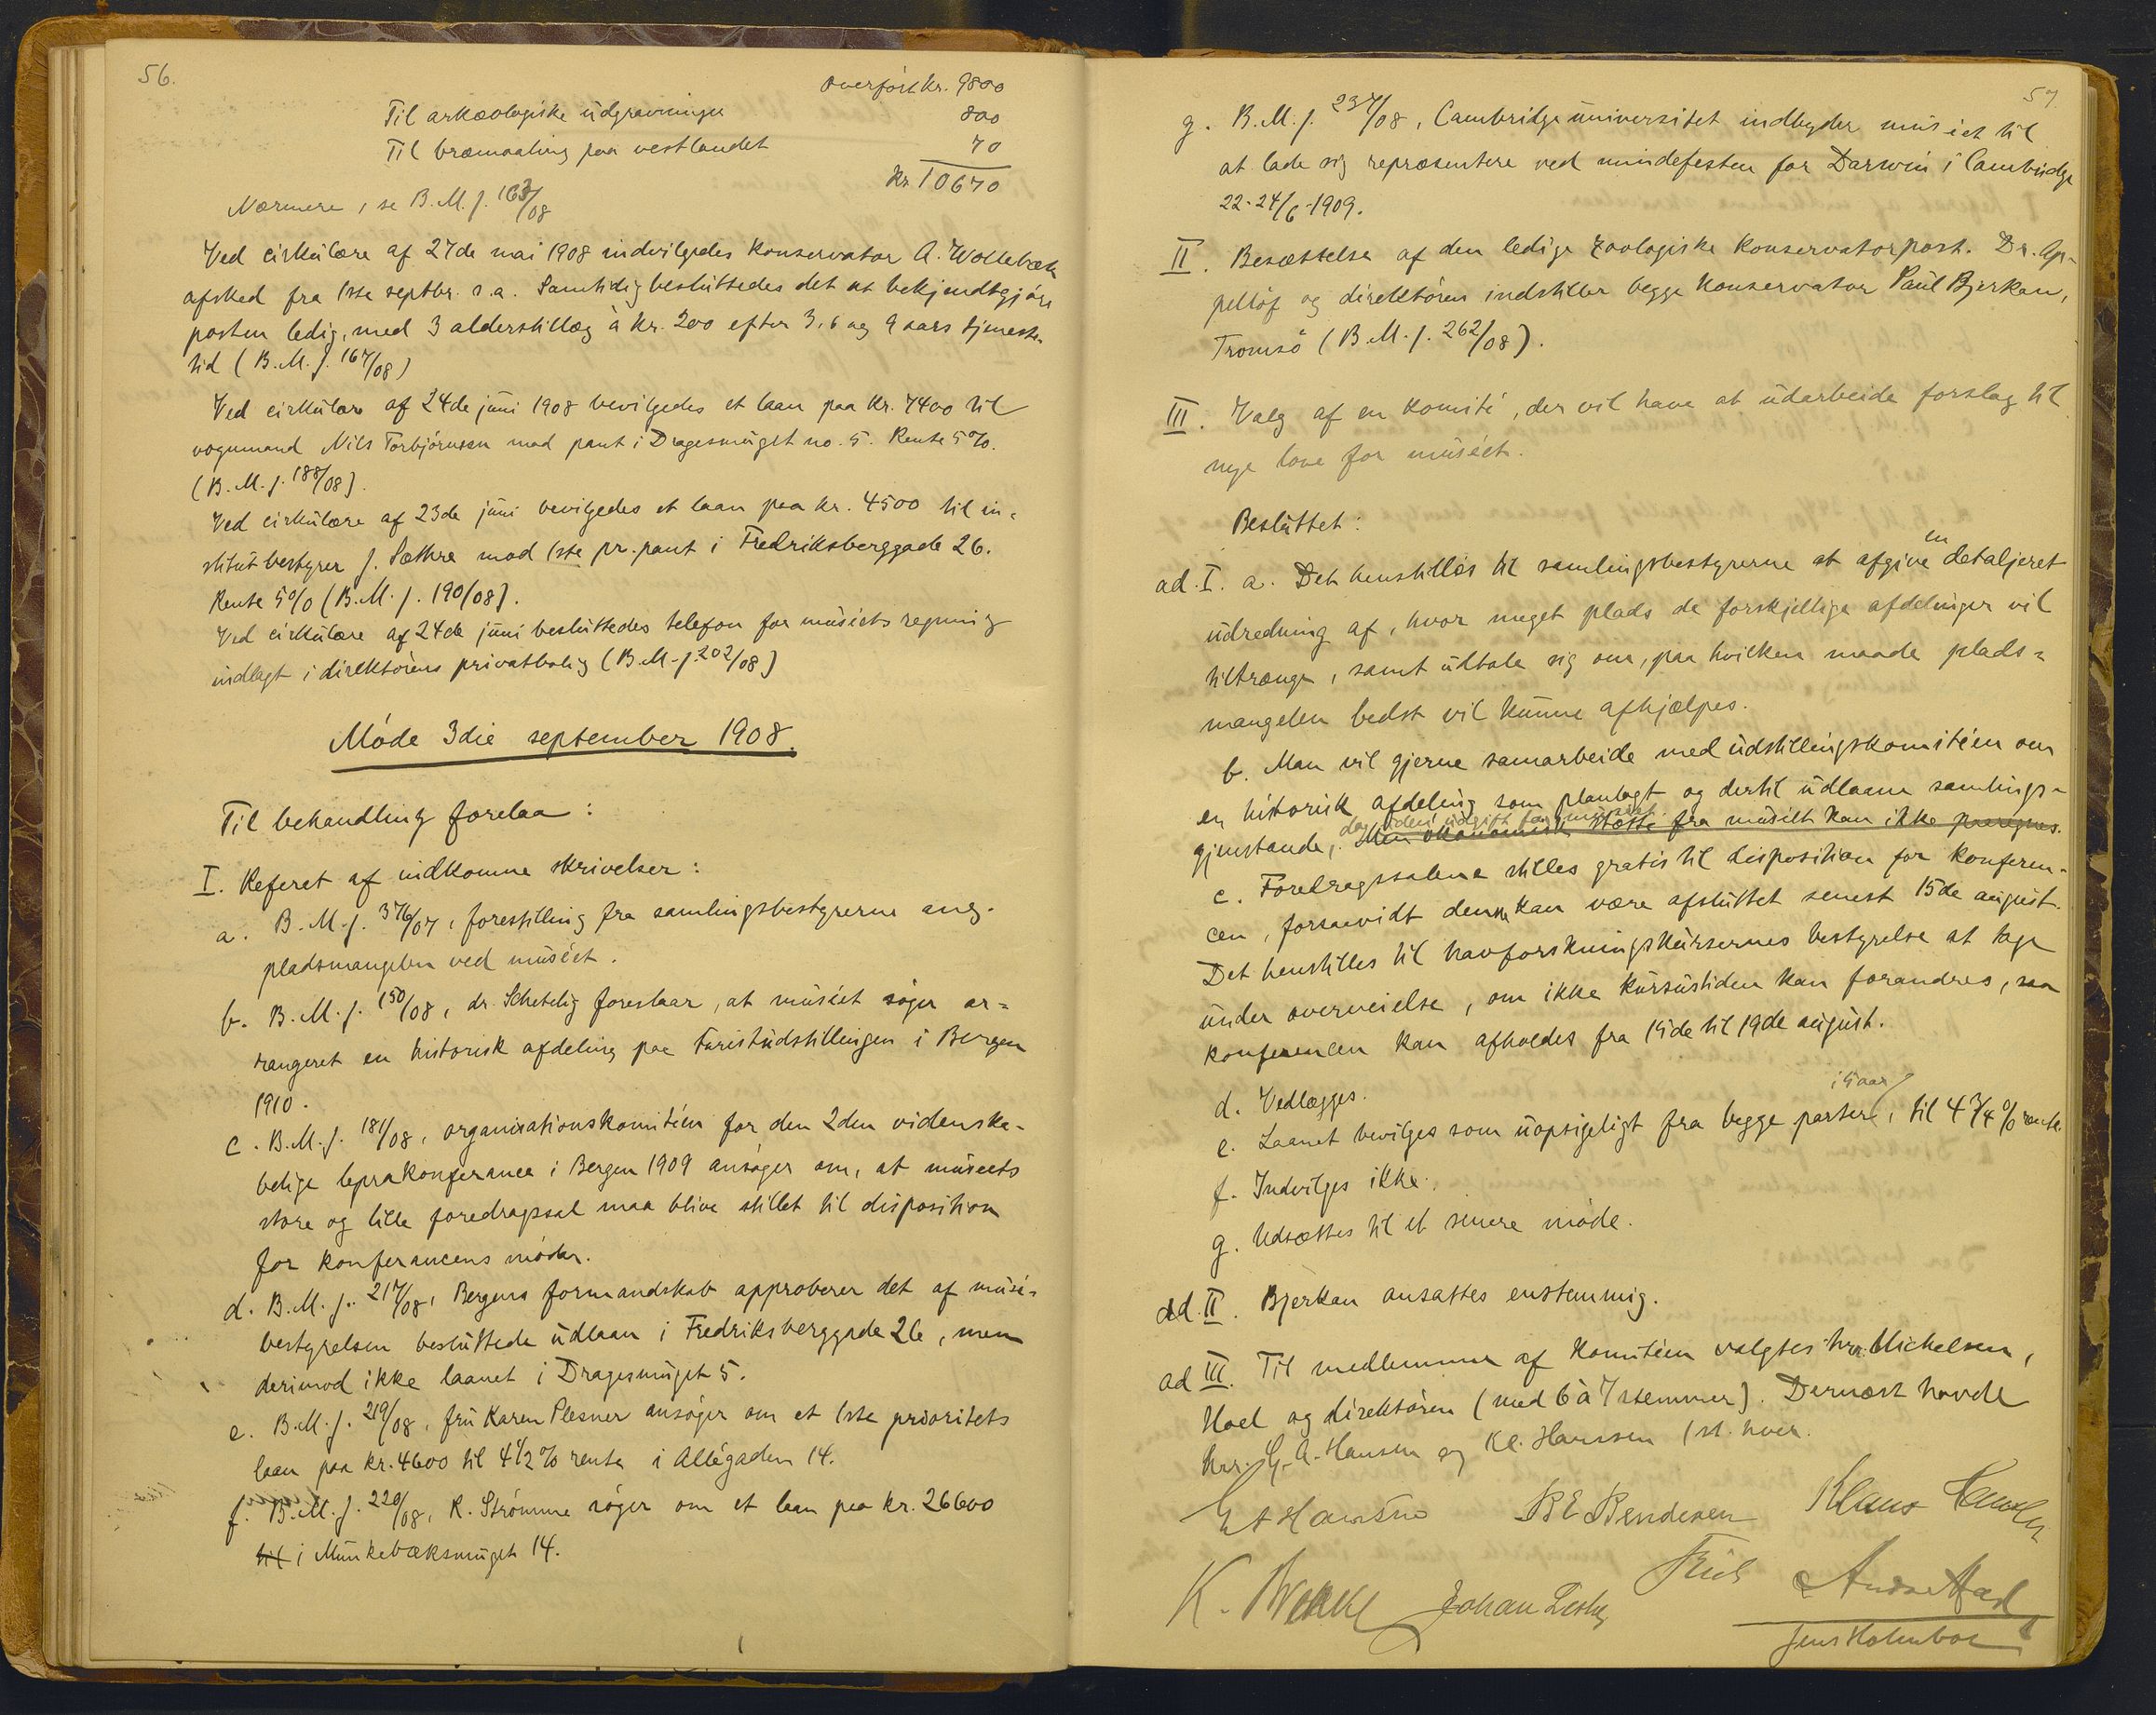 56.
overført kr. 9800
Til arkæologiske udgravninger 800
Til bræmaaling paa vestlandet 70
Kr. 10670
Nærmere, se B.M.j. 163/08
Ved cirkulære af 27de mai 1908 indvilgedes konservator A. Wollebæk
afsked fra 1ste septbr. s.a. Samtidig besluttedes det at bekjendtgjøre
posten ledig, med 3 alderstillæg à kr. 200 efter 3, 6 og 9 aars tjeneste-
tid (B.M.j. 167/08)
Ved cirkulære af 24de juni 1908 bevilgedes et laan paa kr. 7400 til
vognmand Nils Torbjörnsen mod pant i Dragesmuget no. 5. Rente 5%.
(B.M.j. 188/08).
Ved cirkulære af 23de juni bevilgedes et laan paa kr. 4500 til in-
stitutbestyrer J. Sæthre mod 1ste pr. pant i Fredriksberggade 26.
Rente 5% (B.M.j. 190/08).
Ved cirkulære af 24de juni besluttedes telefon for muséets regning
indlagt i direktörens privatbolig (B.M.j. 202/08)
Møde 3die september 1908.
Til behandling forelaa:
I. Referat af indkomne skrivelser:
a. B.M.j. 376/07, forestilling fra samlingsbestyrerne ang.
pladsmangelen ved muséet.
b. B.M.j. 150/08, dr. Schetelig foreslaar, at muséet søger ar-
rangeret en historisk afdeling paa Turistudstillingen i Bergen
1910.
c. B.M.j. 181/08, organisationskomitéen for den 2den videnska-
belige leprakonferance i Bergen 1909 ansøger om, at muséets
store og lille foredragssal maa blive stillet til disposition
for konferancens møder.
d. B.M.j. 217/08, Bergens formandskab approberer det af musé-
bestyrelsen besluttede udlaan i Fredriksberggade 26, men
derimod ikke laanet i Dragesmuget 5.
e. B.M.j. 219/08, fru Karen Plesner ansøger om et 1ste prioritets
laan paa kr. 4600 til 4 1/2 % rente i Allégaden 14.
f. B.M.j. 220/08, K. Strömme søger om et laan paa kr. 26600
til i Munkebæksmuget 14.
57
g. B.M.j. 237/08, Cambridge universitet indbyder muséet til
at lade sig repræsentere ved mindefesten for Darwin i Cambridge
22-24/6-1909.
II. Besættelse af den ledige zoologiske konservatorpost. Dr. Ap-
pellöf og direktören indstiller begge konservator Paul Bjerkan,
Tromsö (B.M.j. 262/08).
III. Valg af en komité, der vil have at udarbeide forslag til
nye love for muséet.
Besluttet:
ad. I. a. Det henstilles til samlingsbestyrerne at afgive en detaljeret
udredning af, hvor meget plads de forskjellige afdelinger vil
tiltrænge, samt udtale sig om, paa hvilken maade plads-
mangelen bedst vil kunne afhjælpes.
b. Man vil gjerne samarbeide med udstillingskomitéen om
en historisk afdeling som planlagt og dertil udlaane samlings-
dog uden udgift for muséet.
gjenstande, Men økonomisk støtte fra muséet kan ikke paaregnes.
c. Foredragssalene stilles gratis til disposition for konferen-
cen, forsaavidt denne kan være afsluttet senest 15de august.
Det henstilles til havforskningskursernes bestyrelse at tage
under overveielse, om ikke kursustiden kan forandres, saa
konferencen kan afholdes fra 15de til 19de august.
d. Vedlægges.
i 5 aar
e. Laanet bevilges som uopsigeligt fra begge parter, til 4 3/4 % rente.
f. Indvilges ikke.
g. Udsættes til et senere møde.
ad. II. Bjerkan ansattes enstemmig.
ad III. Til medlemmer af komitéen valgtes hrr. Michelsen,
Hoel og direktören (med 6 à 7 stemmer). Dernæst havde
hrr. G. A. Hansen og Kl. Hanssen 1 st. hver.
G A Hansen B E Bendixen Klaus Hanssen
K. Johan
Jens Holmboe